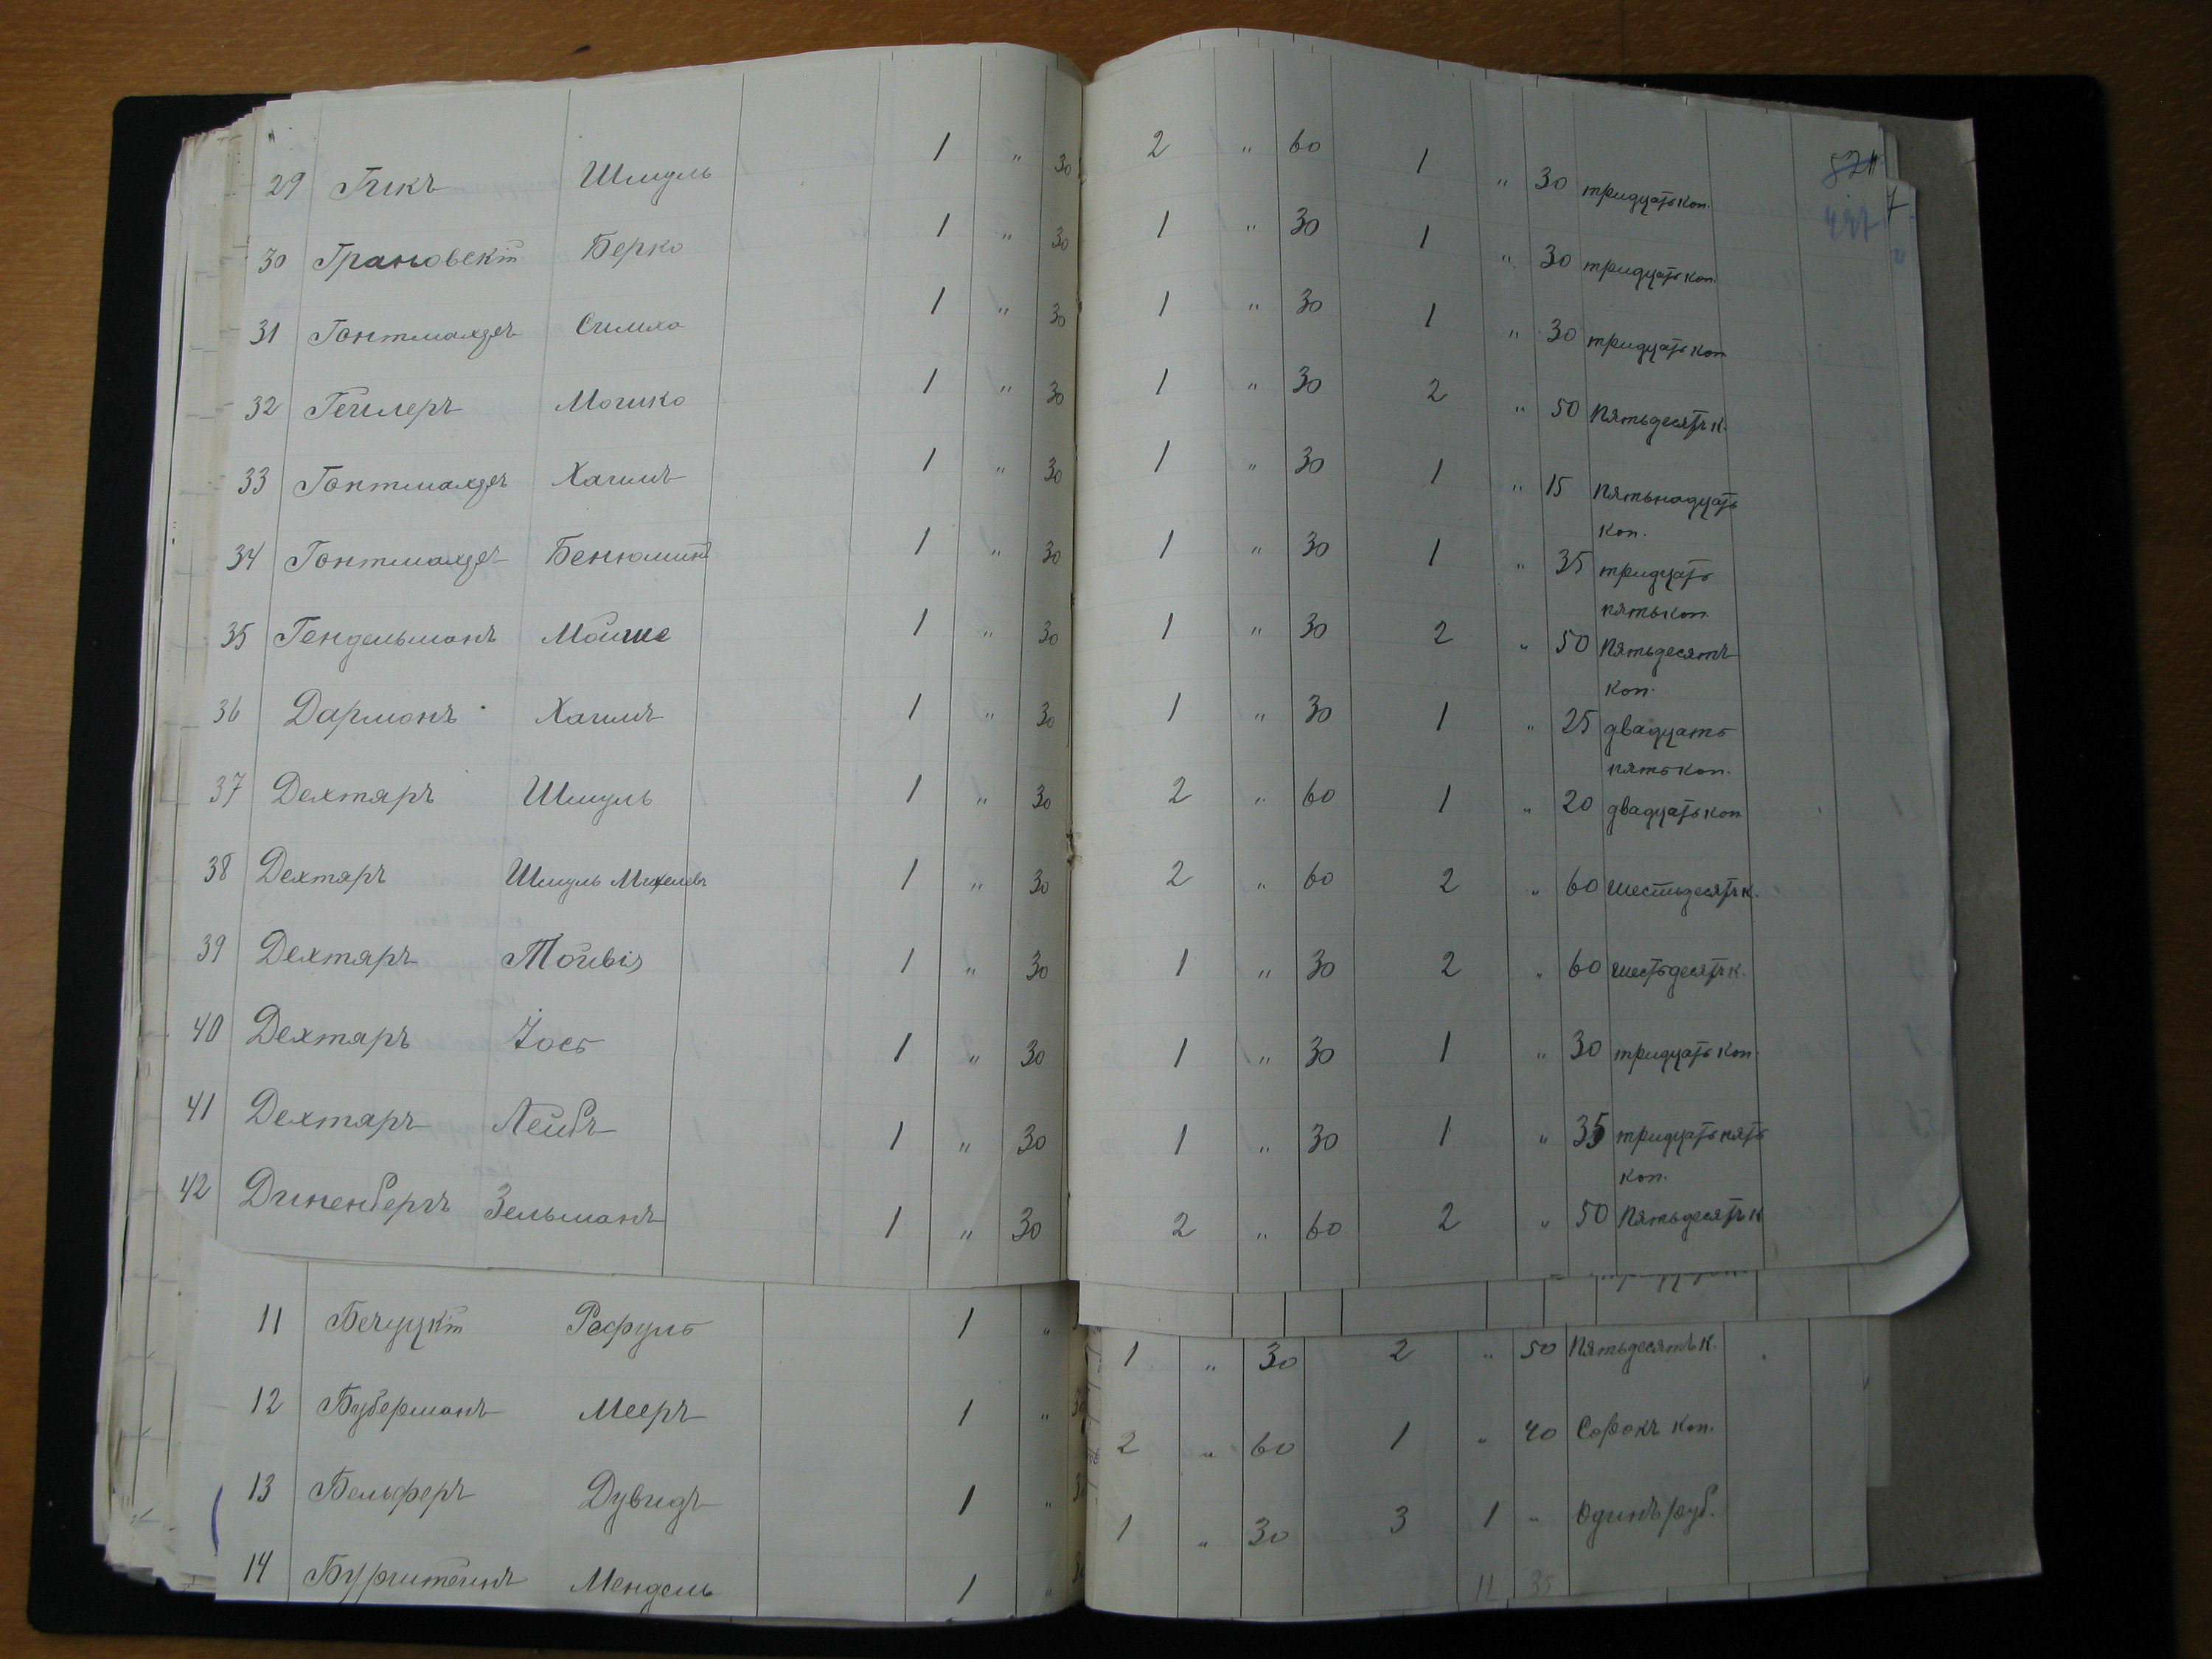 29 Гикъ Шмуль 1 " 30 2 " 60 1 " 30 тридцать коп.
30 Грановскій Берко 1 " 30 1 " 30 1 " 30 тридцать коп.
31 Гонтмахеръ Симха 1 " 30 1 " 30 1 " 30 тридцать коп
32 Гейлеръ Мошко 1 " 30 1 " 30 2 " 50 пятьдесятъ к.
33 Гонтмахеръ Хаимъ 1 " 30 1 " 30 1 " 15 пятьнадцать
коп.
34 Гонтмахеръ Бенюминъ 1 " 30 1 " 30 1 " 35 тридцать
пять коп.
35 Гендельманъ Мойше 1 " 30 1 " 30 2 " 50 пятьдесятъ
коп.
36 Дарманъ Хаимъ 1 " 30 1 " 30 1 " 25 двадцать
пять коп.
37 Дехтяръ Шмуль 1 " 30 2 " 60 1 " 20 двадцать коп
38 Дехтяръ Шмуль Михелевъ 1 " 30 2 " 60 2 " 60 шестьдесятъ к.
39 Дехтяръ Тойвія 1 " 30 1 " 30 2 " 60 шестьдесятъ к.
40 Дехтяръ Іось 1 " 30 1 " 30 1 " 30 тридцать коп.
41 Дехтяръ Лейбъ 1 " 30 1 " 30 1 " 35 тридцать пять
коп.
42 Диненбергъ Зельманъ 1 " 30 2 " 60 2 " 50 пятьдесятъ к
11 Бечуцкій Рафуль 1 " 1 " 30 2 " 50 пятьдесятъ к.
12 Буберманъ Мееръ 1 " 2 " 60 1 " 40 сорокъ коп.
13 Бельферъ Дувидъ 1 " 1 " 30 3 1 " одинъ руб.
14 Бурштейнъ Мендель 1 "
11 35